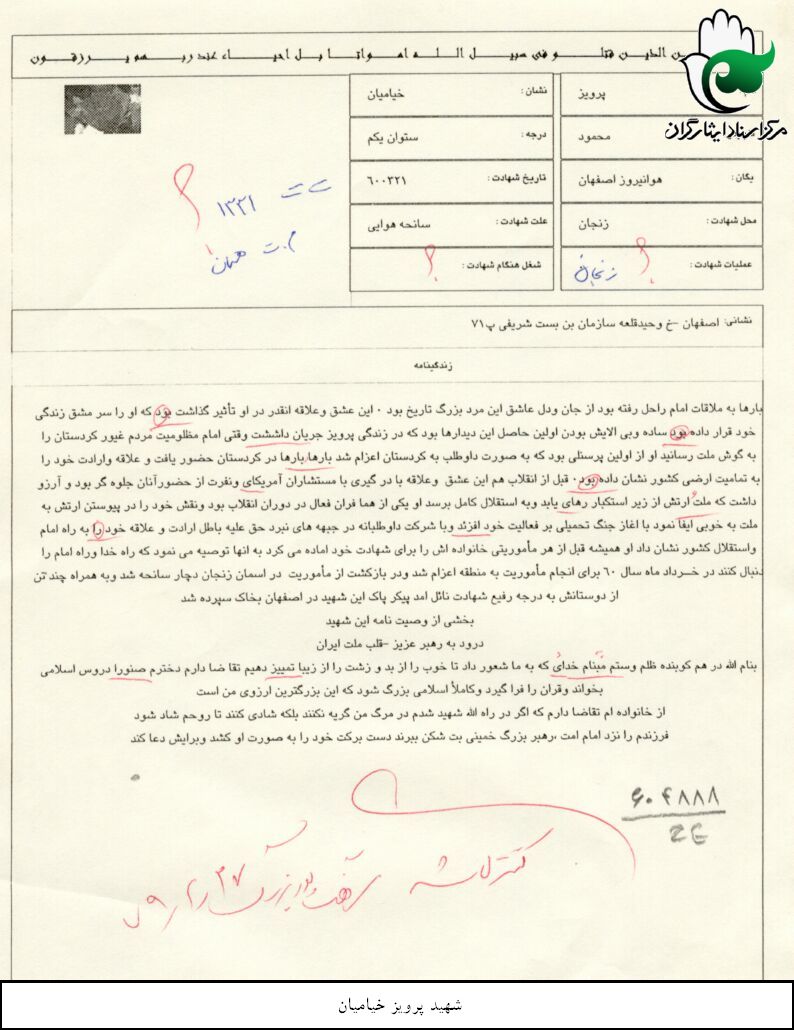 مرکز اسناد ایثارگران
ن الذین قتلو فی سبیل الله امواتا بل احیاء عند ربهم یرزقون
پرویز
نشان: خیامیان
محمود
درجه: ستوان یکم
یکان: هوانیروز اصفهان
تاریخ شهادت: ۶۰۰۳۲۱
محل شهادت: زنجان
علت شهادت: سانحه هوایی
عملیات شهادت: زنجان ؟
شغل هنگام شهادت: ؟
ت ت ۱۳۳۱ ؟
نشانی: اصفهان -خ وحیدقلعه سازمان بن بست شریفی پ۷۱
زندگینامه
بارها به ملاقات امام راحل رفته بود از جان ودل عاشق این مرد بزرگ تاریخ بود ۰ این عشق وعلاقه انقدر در او تأثیر گذاشت بود که او را سر مشق زندگی
خود قرار داده بود ساده وبی الایش بودن اولین حاصل این دیدارها بود که در زندگی پرویز جریان داششت وقتی امام مظلومیت مردم غیور کردستان را
به گوش ملت رسانید او از اولین پرسنلی بود که به صورت داوطلب به کردستان اعزام شد بارها,بارها در کردستان حضور یافت و علاقه وارادت خود را
به تمامیت ارضی کشور نشان داده بود۰ قبل از انقلاب هم این عشق وعلاقه با در گیری با مستشاران آمریکای ونفرت از حضورآنان جلوه گر بود و آرزو
داشت که ملت ارتش از زیر استکبار رهای یابد وبه استقلال کامل برسد او یکی از هما فران فعال در دوران انقلاب بود ونقش خود را در پیوستن ارتش به
ملت به خوبی ایفا نمود با اغاز جنگ تحمیلی بر فعالیت خود افزند وبا شرکت داوطلبانه در جبهه های نبرد حق علیه باطل ارادت و علاقه خود را به راه امام
واستقلال کشور نشان داد او همیشه قبل از هر مأموریتی خانواده اش را برای شهادت خود اماده می کرد به انها توصیه می نمود که راه خدا وراه امام را
دنبال کنند در خرداد ماه سال ۶۰ برای انجام مأموریت به منطقه اعزام شد ودر بازکشت از مأموریت در اسمان زنجان دچار سانحه شد وبه همراه چند تن
از دوستانش به درجه رفیع شهادت نائل امد پیکر پاک این شهید در اصفهان بخاک سپرده شد
بخشی از وصیت نامه این شهید
درود به رهبر عزیز -قلب ملت ایران
بنام الله در هم کوبنده ظلم وستم مبنام خدای که به ما شعور داد تا خوب را از بد و زشت را از زیبا تمییز دهیم تقا ضا دارم دخترم صنورا دروس اسلامی
بخواند وقران را فرا گیرد وکاملاً اسلامی بزرگ شود که این بزرگترین ارزوی من است
از خانواده ام تقاضا دارم که اگر در راه الله شهید شدم در مرگ من گریه نکنند بلکه شادی کنند تا روحم شاد شود
فرزندم را نزد امام امت ،رهبر بزرگ خمینی بت شکن ببرند دست برکت خود را به صورت او کشد وبرایش دعا کند
۶۰۴۸۸۸
کنترل شد
شهید پرویز خیامیان